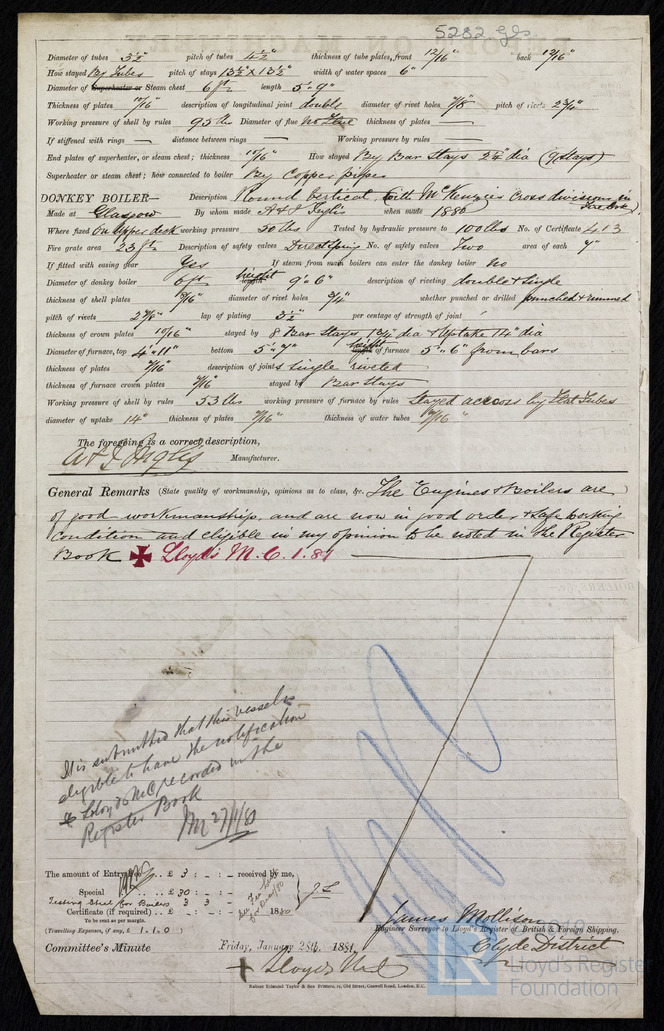 5282 gls
Diameter of tubes 3½" pitch of tubes 4½" thickness of tube plates, front 12/16" back 12/16"
How stayed By Tubes pitch of stays 13½"x13½" width of water spaces 6"
Diameter of Superheater or Steam chest 6ft length 5'9"
Thickness of plates description of longitudinal joint double diameter of rivet holes 7/8 pitch of rivets 2¾"
Working pressure of shell by rules 95 lbs Diameter of flue thickness of plates —
If stiffened with rings — distance between rings — Working pressure by rules —
End plates of superheater, or steam chest; thickness How stayed By Bar Stays dia (9 stays)
Superheater or steam chest; how connected to boiler By Copper pipes
DONKEY BOILER— Description Round vertical (with McKenzies Cross divisions in fire box)
Made at Glasgow By whom made A & J Inglis when made 1880
Where fixed On Upper deck working pressure 50 lbs Tested by hydraulic pressure to 100 lbs No. of Certificate 413
Fire grate area 23 ft Description of safety valves Direct spring No. of safety valves Two area of each 7"
If fitted with easing gear Yes If steam from main boilers can enter the donkey boiler No
Diameter of donkey boiler 6 ft length height 9'6" description of riveting double & single
thickness of shell plates diameter of rivet holes ¾" whether punched or drilled punched & rimmed
pitch of rivets lap of plating 3½" per centage of strength of joint
thickness of crown plates 10/16" stayed by 8 Bar Stays 1¾" dia & Uptake 14" dia
Diameter of furnace, top 4'11" bottom 5'7" length height of furnace 5'6" from bars
thickness of plates description of joints single riveted
thickness of furnace crown plates stayed by Bar Stays
Working pressure of shell by rules 53 lbs working pressure of furnace by rules Stayed across by Flat Tubes
diameter of uptake 14" thickness of plates thickness of water tubes
The foregoing is a correct description,
A & J Inglis Manufacturer.
General Remarks (State quality of workmanship, opinions as to class, &c. The Engines & Boilers are
of good workmanship, and are now in good order & safe working
condition and eligible in my opinion to be noted in the Register
Book ✠ Lloyd's M.C. 1.81
It is submitted that this vessel is
eligible to have the notification
Lloyds MC recorded in the
Register Book
27/1/81
The amount of Entry Fee .. £ 3 : - : - received by me,
Special .. £ 30 : - : -
Testing Steel for Boilers 3 3
Certificate (if required) .. £ - : - : - 1880
To be sent as per margin.
(Travelling Expenses, if any, £ 1.1.0 )
James Mollison
Engineer Surveyor to Lloyd's Register of British & Foreign Shipping.
Clyde District
Committee's Minute Friday, January 28th, 1881.
+ Lloyds M.C.
Robert Edmund Taylor & Son Printers, 19, Old Street, Goswell Road, London, E.C.
LR
Lloyd's Register
Foundation